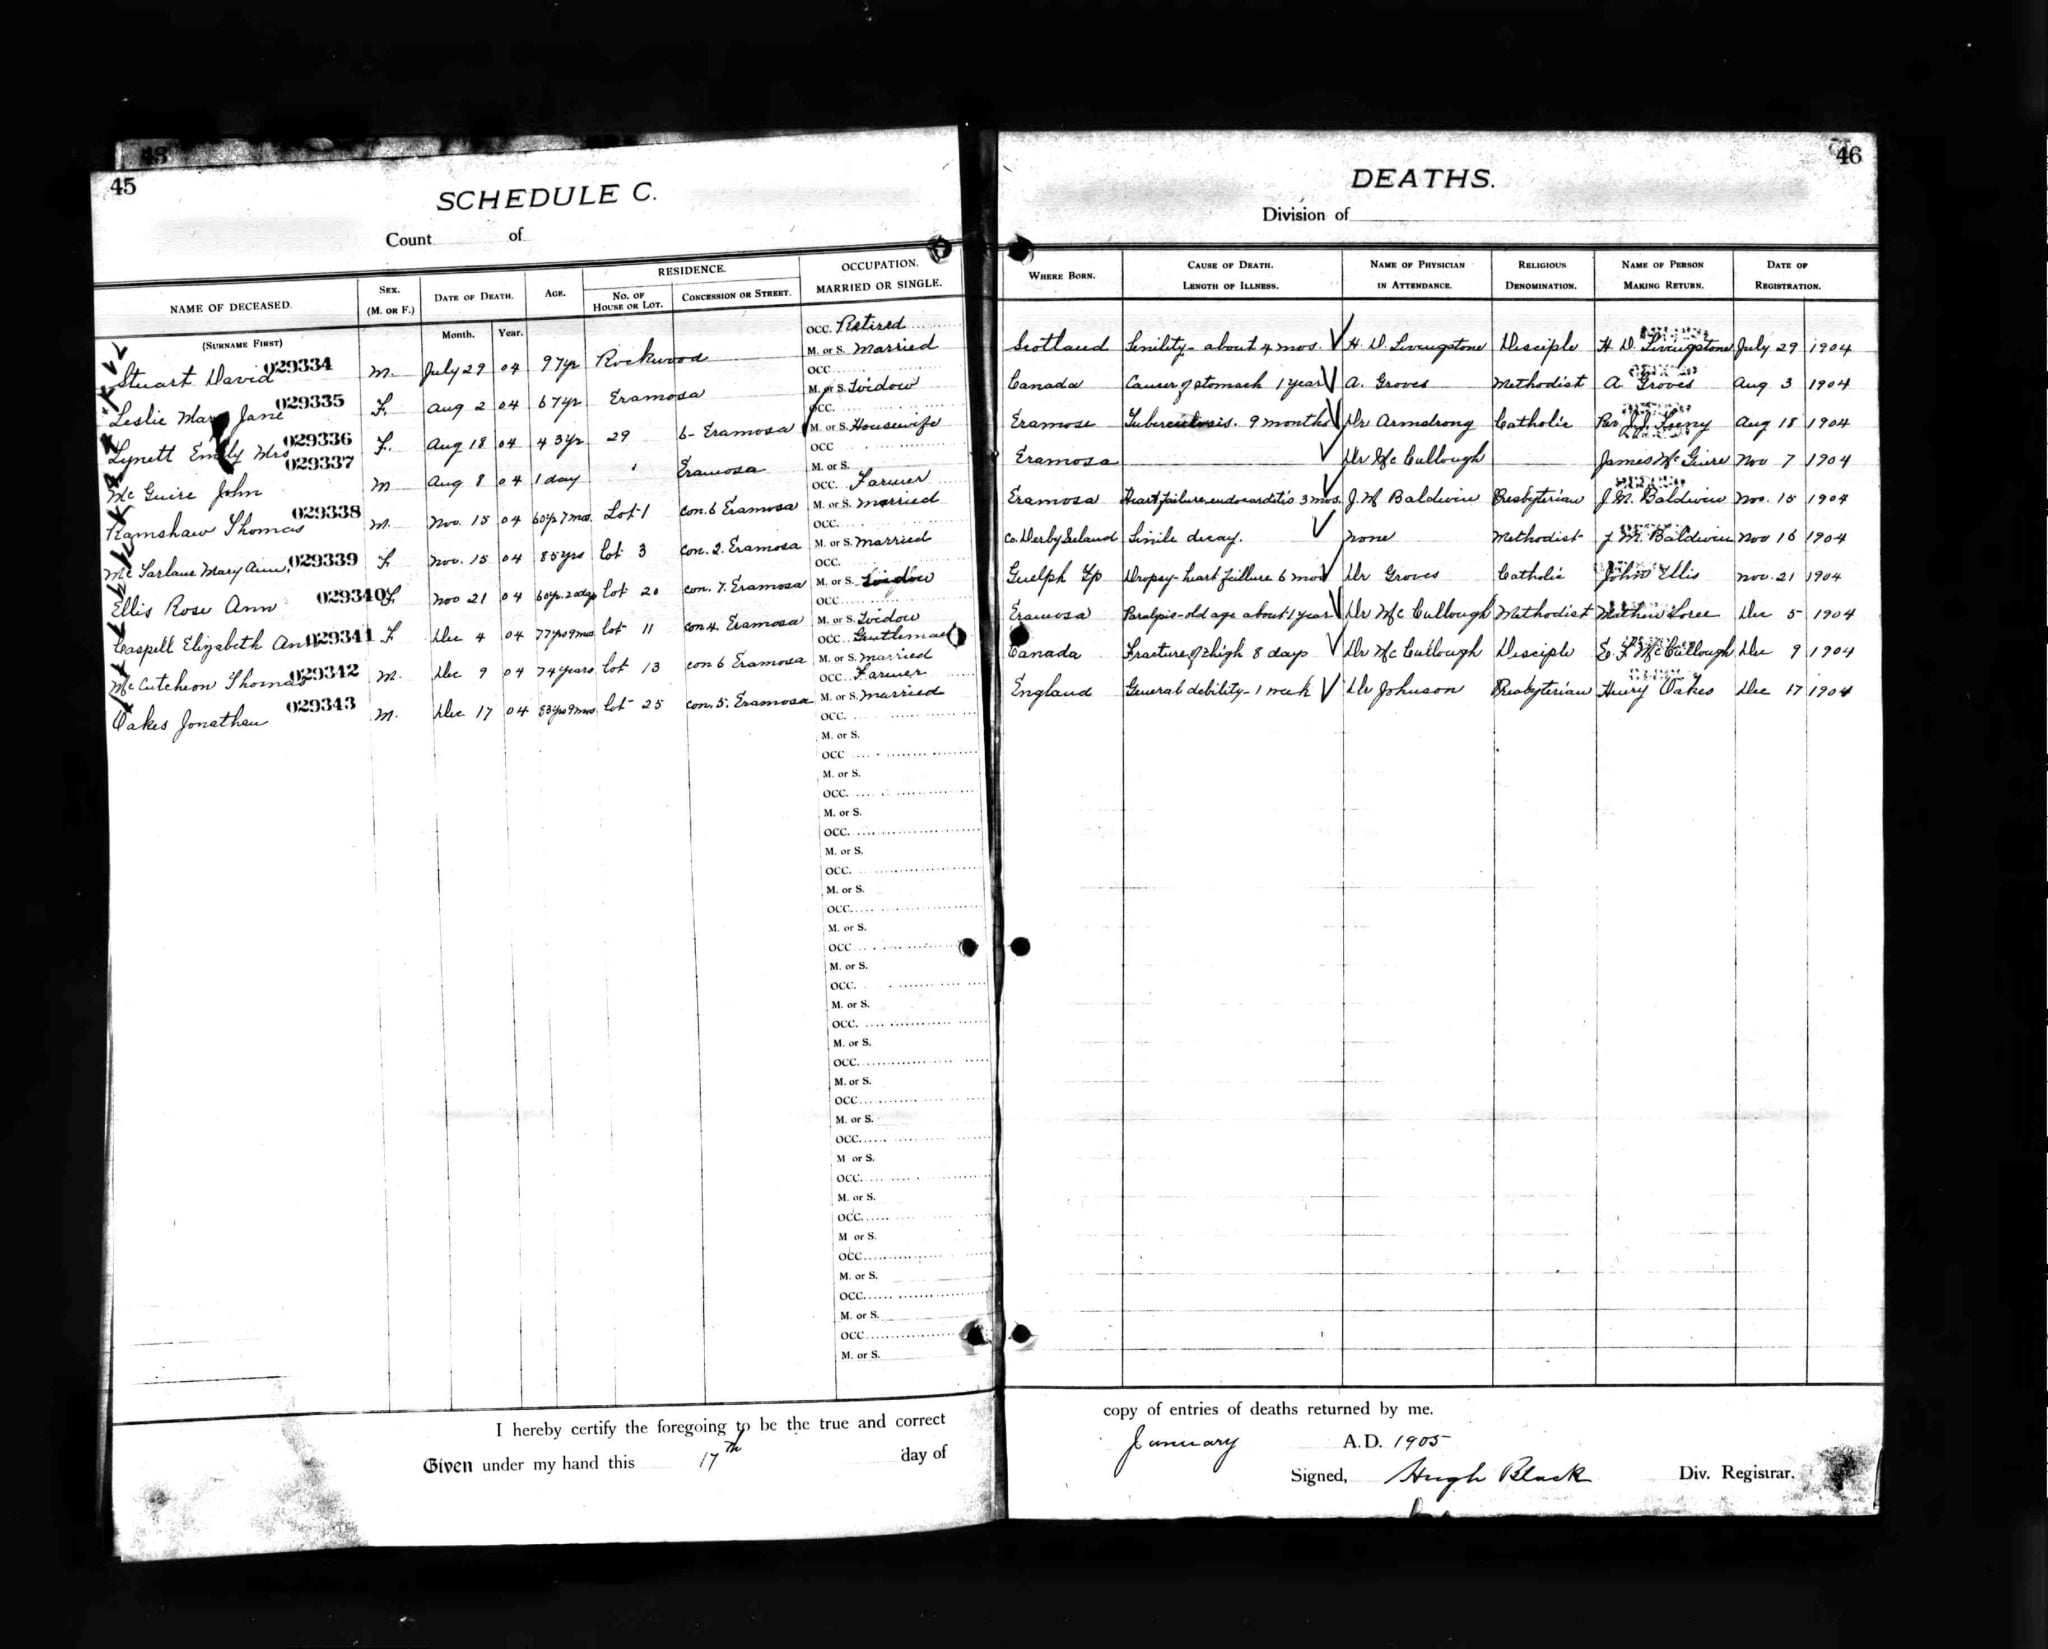 45
SCHEDULE C.
Count of
NAME OF DECEASED.
(SURNAME FIRST)
SEX.
(M. OR F.)
DATE OF DEATH.
Month. Year.
AGE.
RESIDENCE.
NO. OF HOUSE OR LOT.
CONCESSION OR STREET.
OCCUPATION.
MARRIED OR SINGLE.
OCC. Retired
Stuart David 029334 M. July 29 04 97yr Rockwood M. or S. Married
OCC.
Leslie Mary Jane 029335 F. Aug 2 04 67yr Eramosa M. or S. Widow
OCC.
Lynett Emily Mrs 029336 F. Aug 18 04 43yr 29 6- Eramosa M. or S. Housewife
OCC
McGuire John 029337 M Aug 8 04 1 day Eramosa M. or S.
OCC. Farmer
Ramshaw Thomas 029338 M. Nov. 15 04 60yr 7mos. Lot 1 Con. 6 Eramosa M. or S. Married
OCC.
McFarlane Mary Ann 029339 F Nov. 15 04 85yrs Lot 3 Con. 2. Eramosa M. or S. Married
OCC.
Ellis Rose Ann 029340 F. Nov 21 04 60yr. 20dys Lot 20 Con. 7. Eramosa M. or S. Widow
OCC.
Caspell Elizabeth Ann 029341 F Dec 4 04 77yrs 9mos Lot 11 Con 4. Eramosa M. or S. Widow
OCC. Gentleman
McCutcheon Thomas 029342 M. Dec 9 04 74 years Lot 13 Con 6 Eramosa M. or S. Married
OCC. Farmer
Oakes Jonathan 029343 M. Dec 17 04 83yrs 9mos Lot 25 Con. 5. Eramosa M. or S. Married
OCC.
M. or S.
OCC
M. or S.
OCC.
M. or S.
OCC.
M. or S.
OCC.
M. or S.
OCC.
M. or S.
OCC
M. or S.
OCC.
M. or S.
OCC.
M. or S.
OCC.
M. or S.
OCC
M. or S.
OCC.
M or S.
OCC.
M. or S.
OCC.
M or S.
OCC.
M. or S.
OCC.
M. or S.
OCC
M. or S.
I hereby certify the foregoing to be the true and correct
Given under my hand this 17th day of
46
DEATHS.
Division of
WHERE BORN.
CAUSE OF DEATH.
LENGTH OF ILLNESS.
NAME OF PHYSICIAN
IN ATTENDANCE.
RELIGIOUS
DENOMINATION.
NAME OF PERSON
MAKING RETURN.
DATE OF
REGISTRATION.
Scotland Senility - about 4 mos. H. D. Livingstone Disciple H. D. Livingstone July 29 1904
Canada Cancer of stomach 1 year A. Groves Methodist A. Groves Aug 3 1904
Eramosa Tuberculosis. 9 months Dr Armstrong Catholic Rev. J. J. Feeny Aug 18 1904
Eramosa Dr McCullough James McGuire Nov 7 1904
Eramosa Heart failure endocarditis 3 mos. J. M Baldwin Presbyterian J. M. Baldwin Nov. 15 1904
Co. Derby Ireland Senile decay. None Methodist J. M. Baldwin Nov 16 1904
Guelph Tp Dropsy - heart failure 6 mos Dr Groves Catholic John Ellis Nov. 21 1904
Eramosa Paralysis - old age about 1 year Dr McCullough Methodist Mathew Loree Dec 5 1904
Canada Fracture of thigh 8 days Dr McCullough Disciple E. F McCullough Dec 9 1904
England General debility - 1 week Dr Johnson Presbyterian Henry Oakes Dec 17 1904
copy of entries of deaths returned by me.
January A.D. 1905
Signed, Hugh Black Div. Registrar.